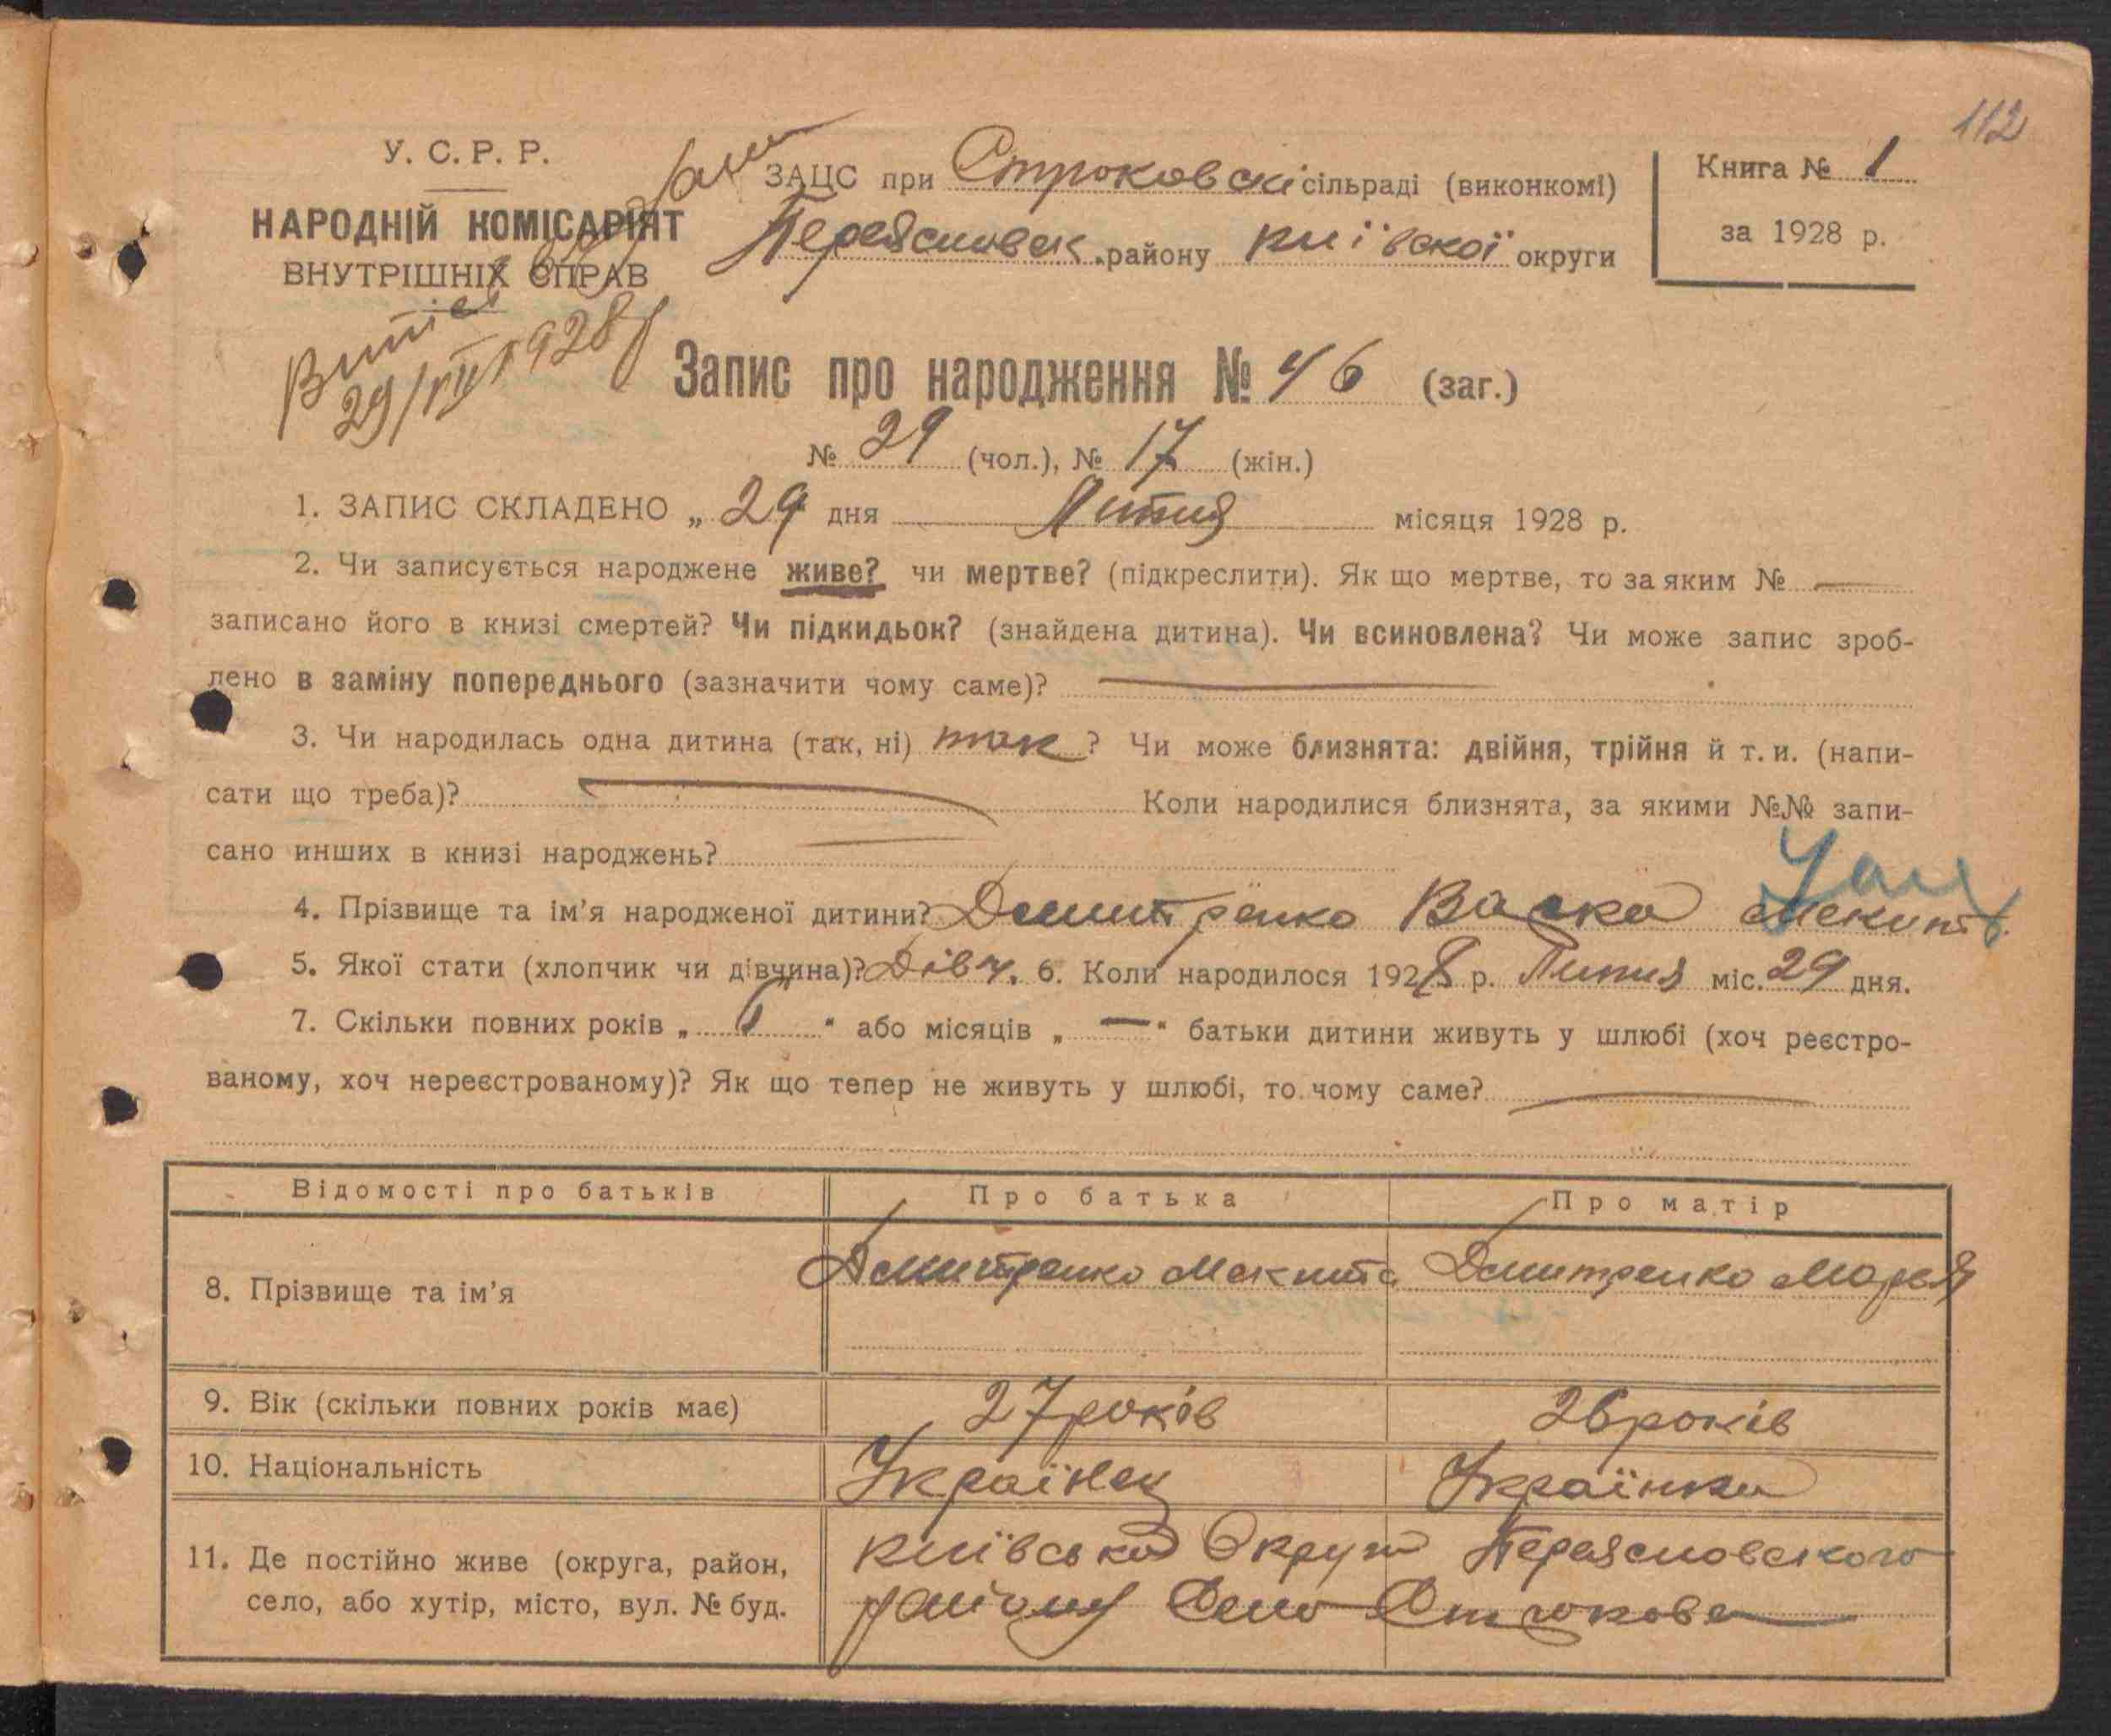 112
У. С. Р. Р.
НАРОДНІЙ КОМІСАРІЯТ
ВНУТРІШНІХ СПРАВ
ЗАЦС при Строковскі сільраді (виконкомі)
Переясловск. району київскої округи
Книга № 1
за 1928 р.
Витяг
29/VII 1928 р
Запис про народження № 46 (заг.)
№ 29 (чол.), № 17 (жін.)
1. ЗАПИС СКЛАДЕНО „ 29 дня Липня місяця 1928 р.
2. Чи записується народжене живе? чи мертве? (підкреслити). Як що мертве, то за яким № —
записано його в книзі смертей? Чи підкидьок? (знайдена дитина). Чи всиновлена? Чи може запис зроб-
лено в заміну попереднього (зазначити чому саме)? —
3. Чи народилась одна дитина (так, ні) так ? Чи може близнята: двійня, трійня й т. и. (напи-
сати що треба)? Коли народилися близнята, за якими №№ запи-
сано инших в книзі народжень?
4. Прізвище та ім'я народженої дитини? Дмитренко Васка Мекит
5. Якої стати (хлопчик чи дівчина)? Дівч. 6. Коли народилося 1928 р. Липня міс. 29 дня.
7. Скільки повних років „ 6 " або місяців „ — " батьки дитини живуть у шлюбі (хоч реєстро-
ваному, хоч нереєстрованому)? Як що тепер не живуть у шлюбі, то чому саме? —
Відомості про батьків Про батька Про матір
8. Прізвище та ім'я Дмитренко Мекита Дмитренко Марья
9. Вік (скільки повних років має) 27 років 26 років
10. Національність Українец Українка
11. Де постійно живе (округа, район, київська Округа Переясловского
село, або хутір, місто, вул. № буд. району Село Строкова